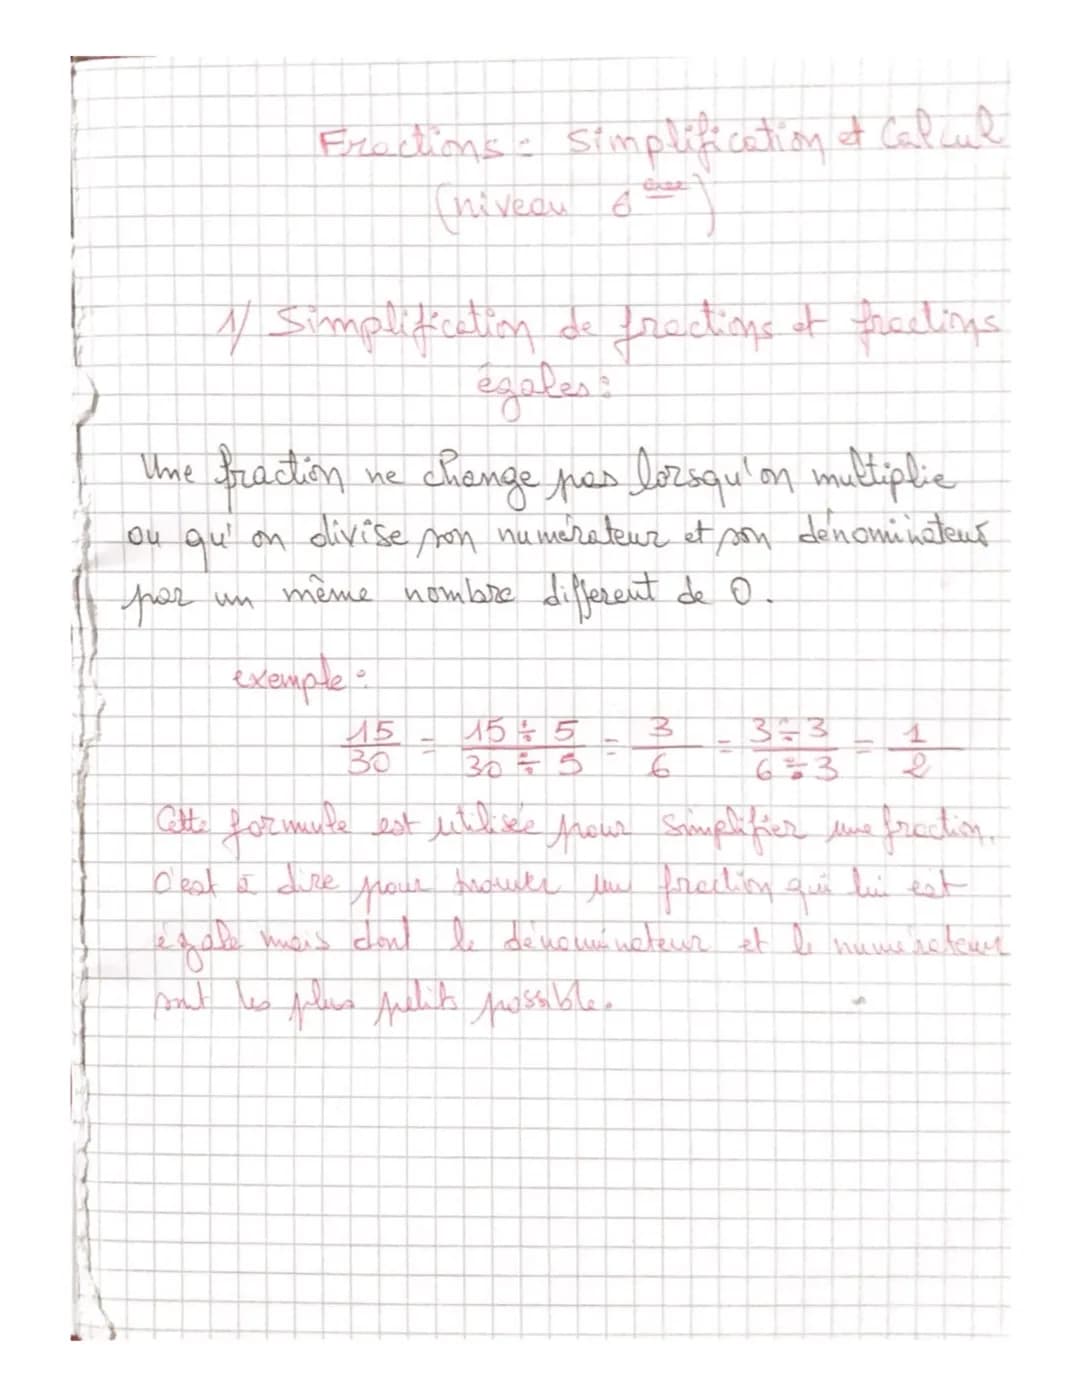 Fractions : Simplification et Calcul
(niveau 6ème)
1/ Simplification de fractions et fractions
égales :
Une fraction ne change pas lorsqu'on multiplie
ou qu'on divise son numérateur et son dénominateur
par un même nombre different de 0.
exemple :
15/30 = 15÷5/30÷5 = 3/6 = 3÷3/6÷3 = 1/2
Cette formule est utilisée pour simplifier une fraction.
C'est à dire pour trouver une fraction qui lui est
égale mais dont le dénominateur et le numérateur
sont les plus petits possible.